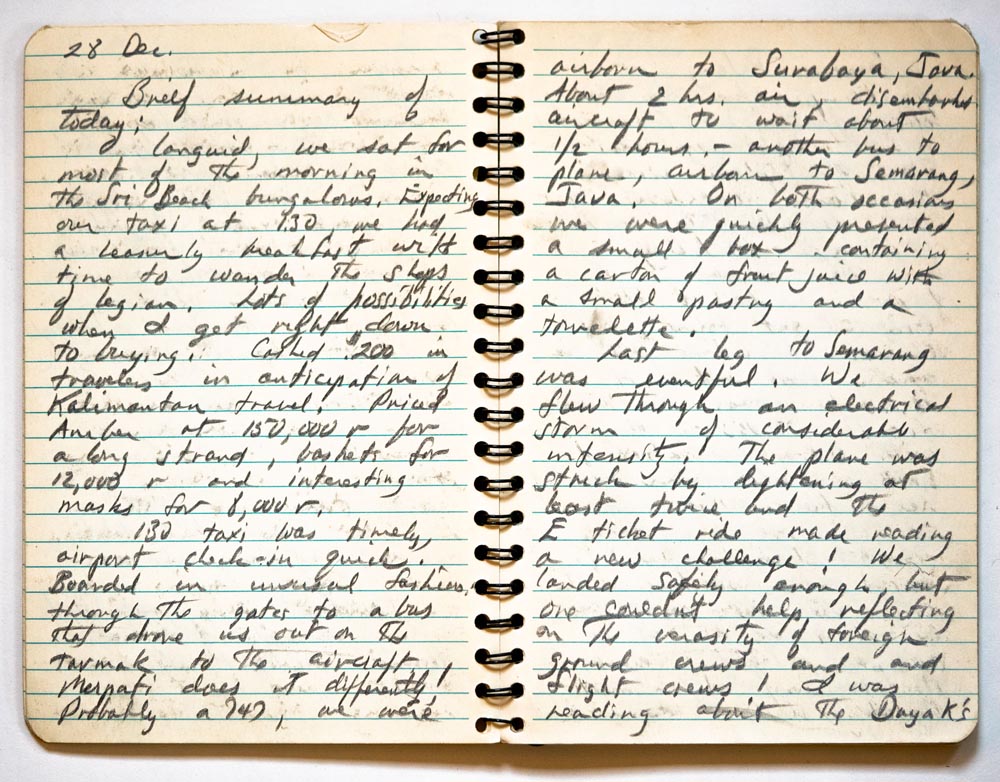 28 Dec.
Breif summary of
today;
languid, we sat for
most of the morning in
the Sri Beach bungalows. Expecting
our taxi at 1:30 we had
a leasurly breakfast with
time to wander the shops
of legian. Lots of possibilities
when I get right down
to buying. Cashed $200 in
travelers in anticipation of
Kalimantan travel. Priced
Amber at 150,000 r for
a long strand, baskets for
12,000 r and interesting
masks for 8,000 r.
130 taxi was timely,
airport check-in quick.
Boarded in unusual fashion,
through the gates to a bus
that drove us out on the
tarmak to the aircraft
Merpati does it differently!
Probably a 747, we were
airborn to Surabaya, Java.
About 2 hrs. air, disembarked
aircraft to wait about
1/2 hours. - another bus to
plane, airborn to Semarang,
Java. On both occasions
we were quickly presented
a small box containing
a carton of fruit juice with
a small pastry and a
towedette.
Last leg to Semarang
was eventful. We
flew through an electrical
storm of considerable
intensity. The plane was
struck by lightening at
least twice and the
E ticket ride made reading
a new challenge! We
landed safely enough but
one couldn't help reflecting
on the verasity of foreign
ground crews and and
flight crews! I was
reading about the Dayak's